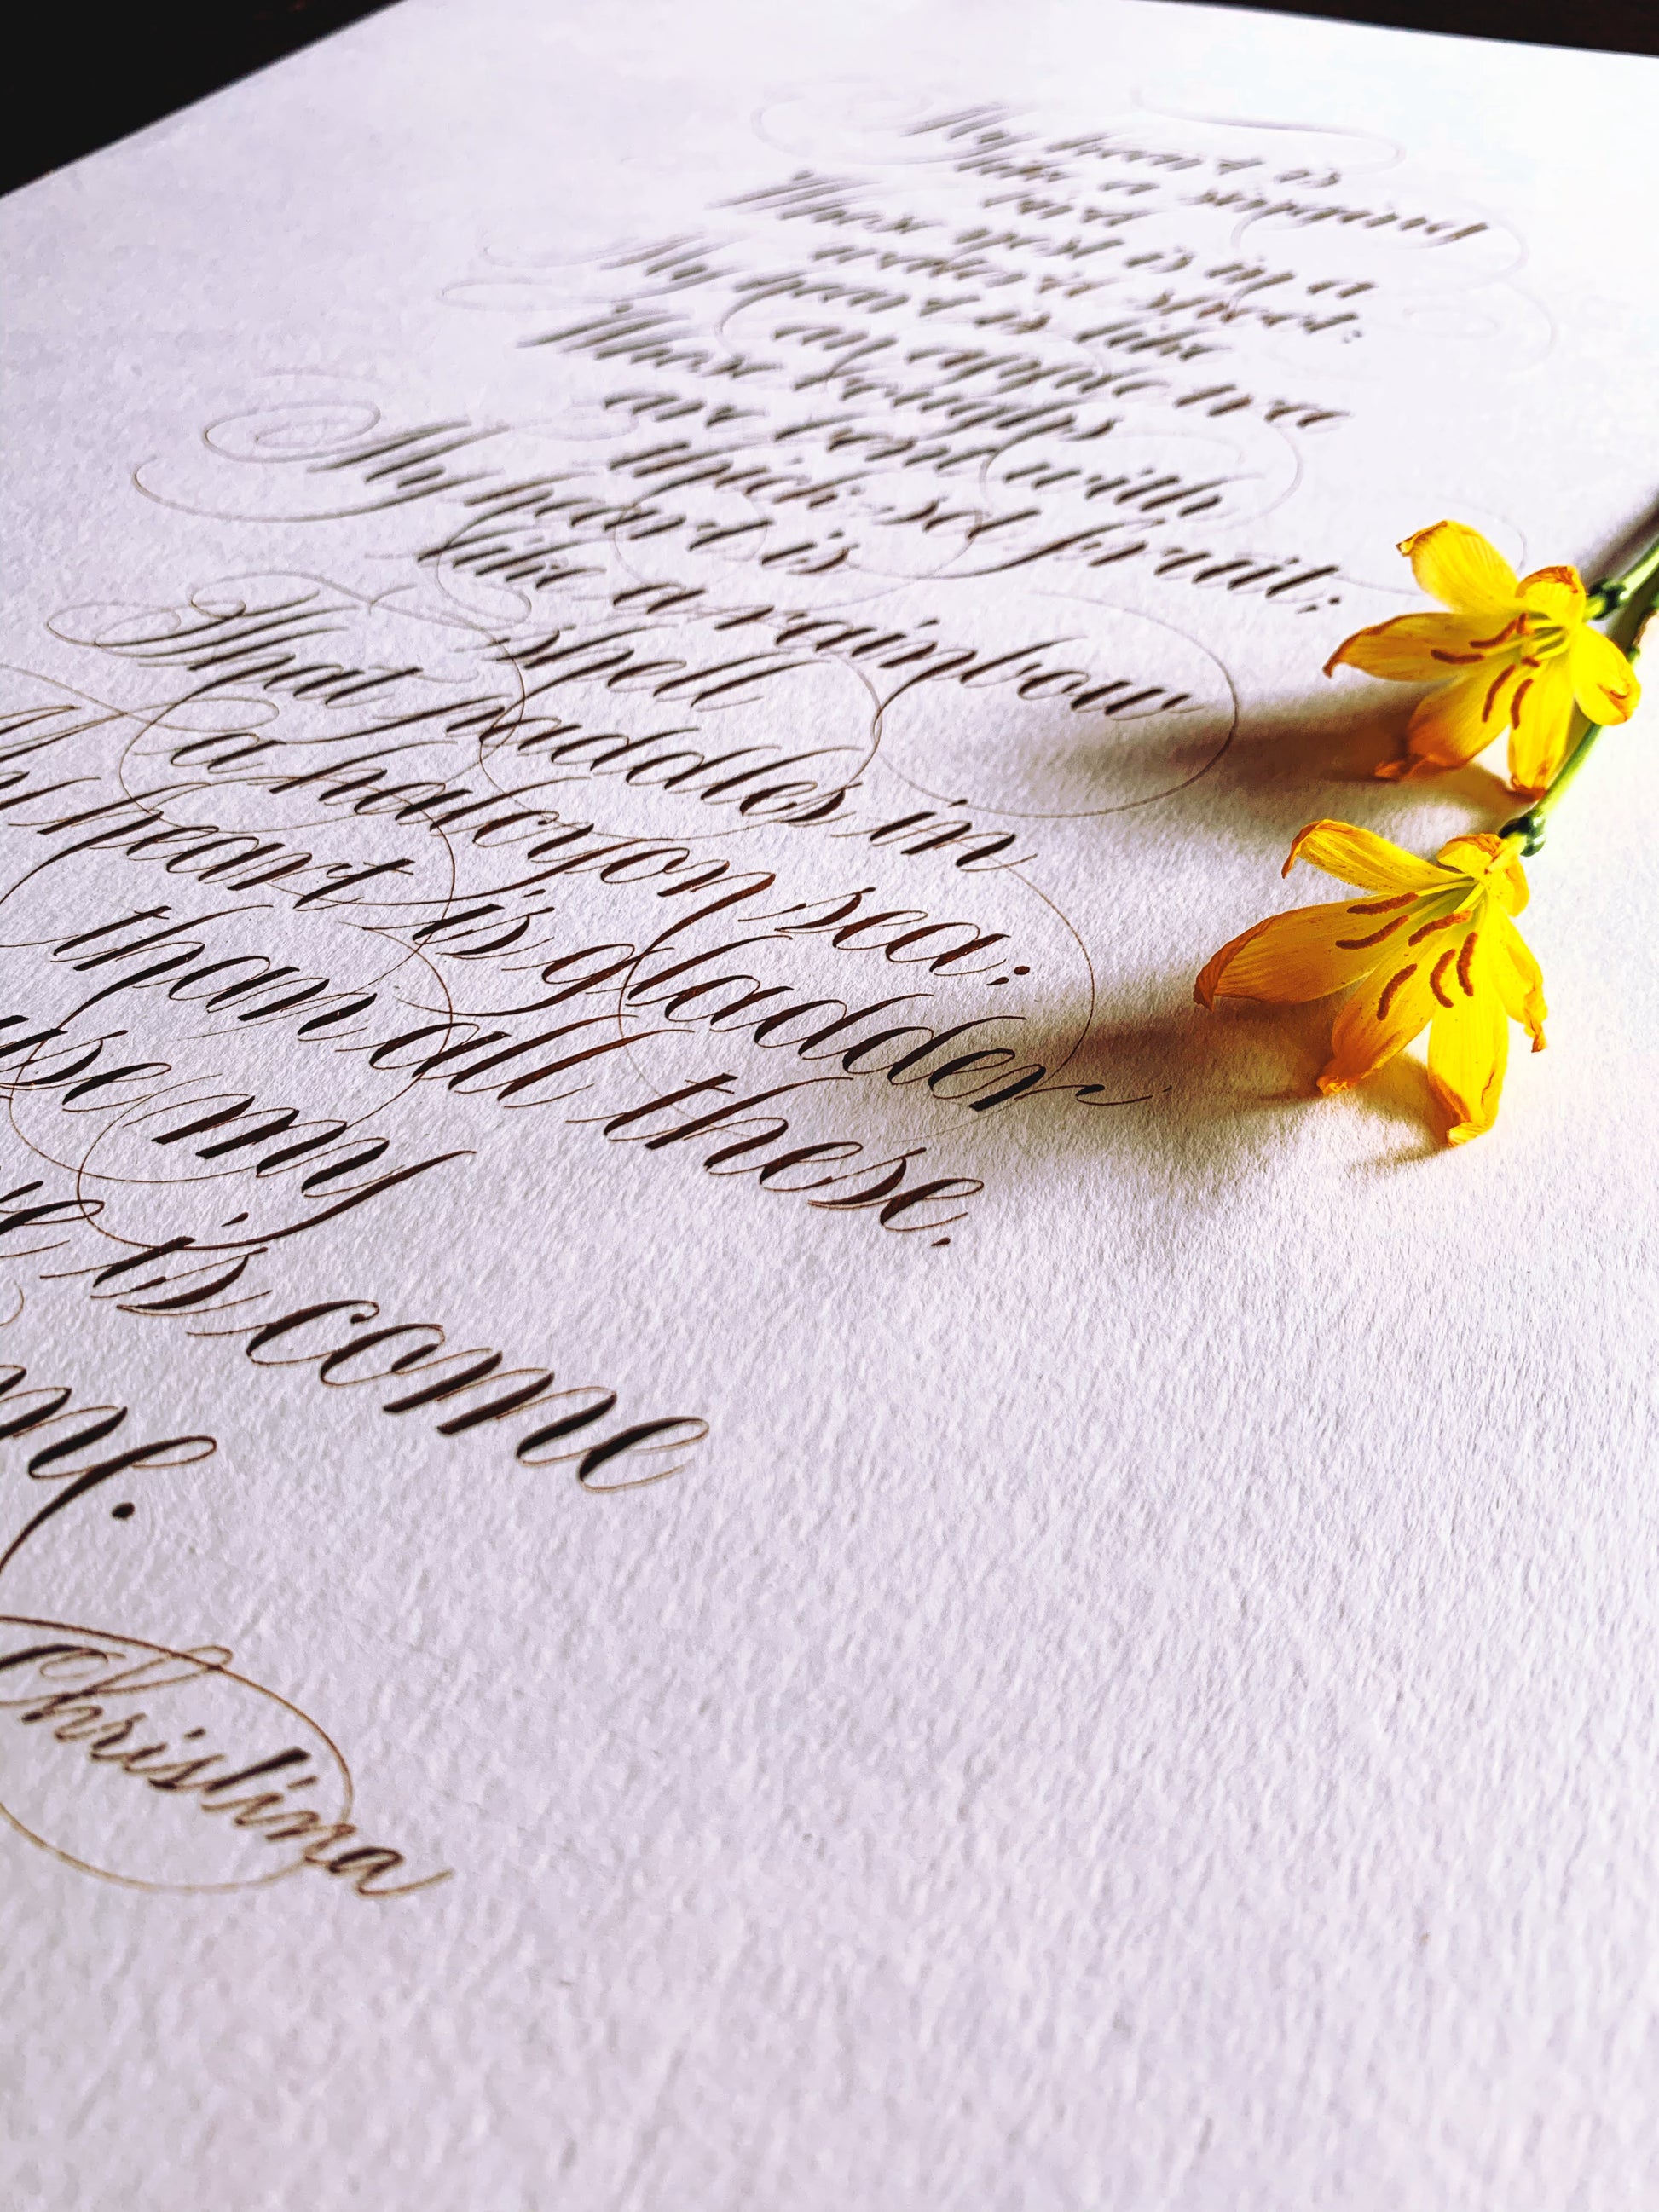 My heart is
like a singing
bird
Whose nest is in a
water'd shoot:
My heart is like
an apple tree
Whose boughs
are bend with
thick-set fruit;
My heart is
like a rainbow
shell
That paddles in
a halcyon sea;
My heart is gladder
than all these,
my
is come
me.
Christina